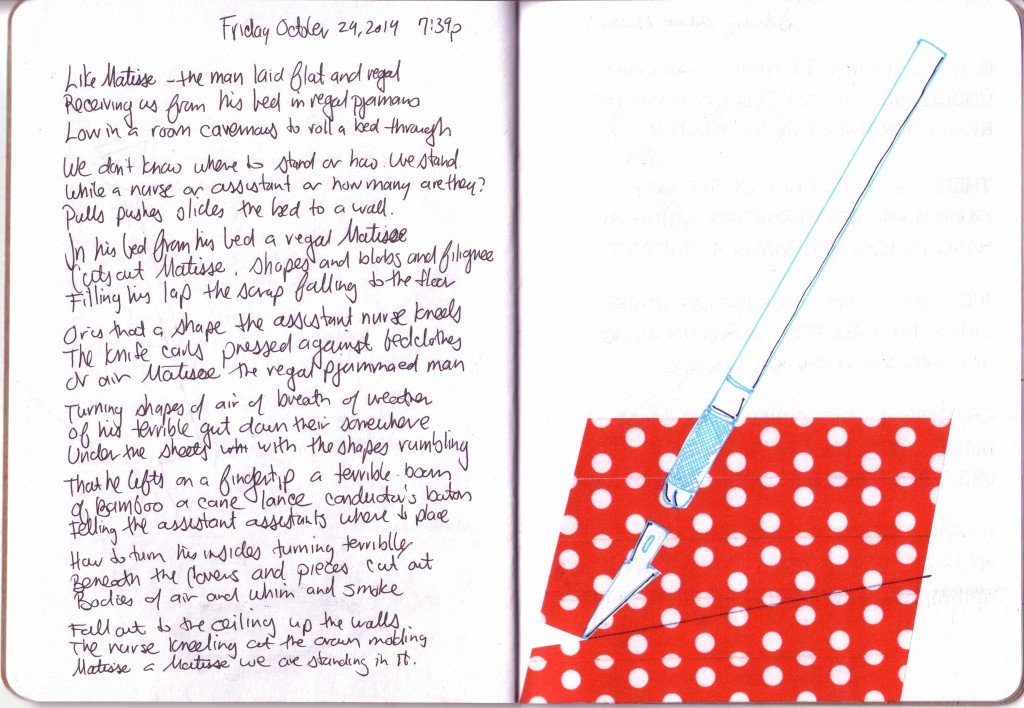 Friday October 24, 2014 7:39p
Like Matisse – the man laid flat and regal
Receiving us from his bed in regal pjamans
Low in a room cavernous to roll a bed through
We don't know where to stand or how we stand
While a nurse or assistant or how many are they?
Pulls pushes slides the bed to a wall.
In his bed from his bed a regal Matisse
Cuts out Matisse. Shapes and blobs and filignee
Filling his lap the scrap falling to the floor
Or is that a shape the assistant nurse kneels
The knife curls pressed against bedclothes
Or air Matisse the regal pjammaed man
Turning shapes of air of breath of weather
Of his terrible gut down their somewhere
Under the sheets with the shapes rumbling
That he lefts on a fingertip a terrible boom
Of Bamboo a cane lance conductor's baton
Telling the assistant assistants where to place
How to turn his insides turning terriblly
Beneath the Covers and pieces cut out
Bodies of air and whim and smoke
Fall out to the ceiling up the walls
The nurse kneeling at the crown molding
Matisse a Matisse we are standing in it.